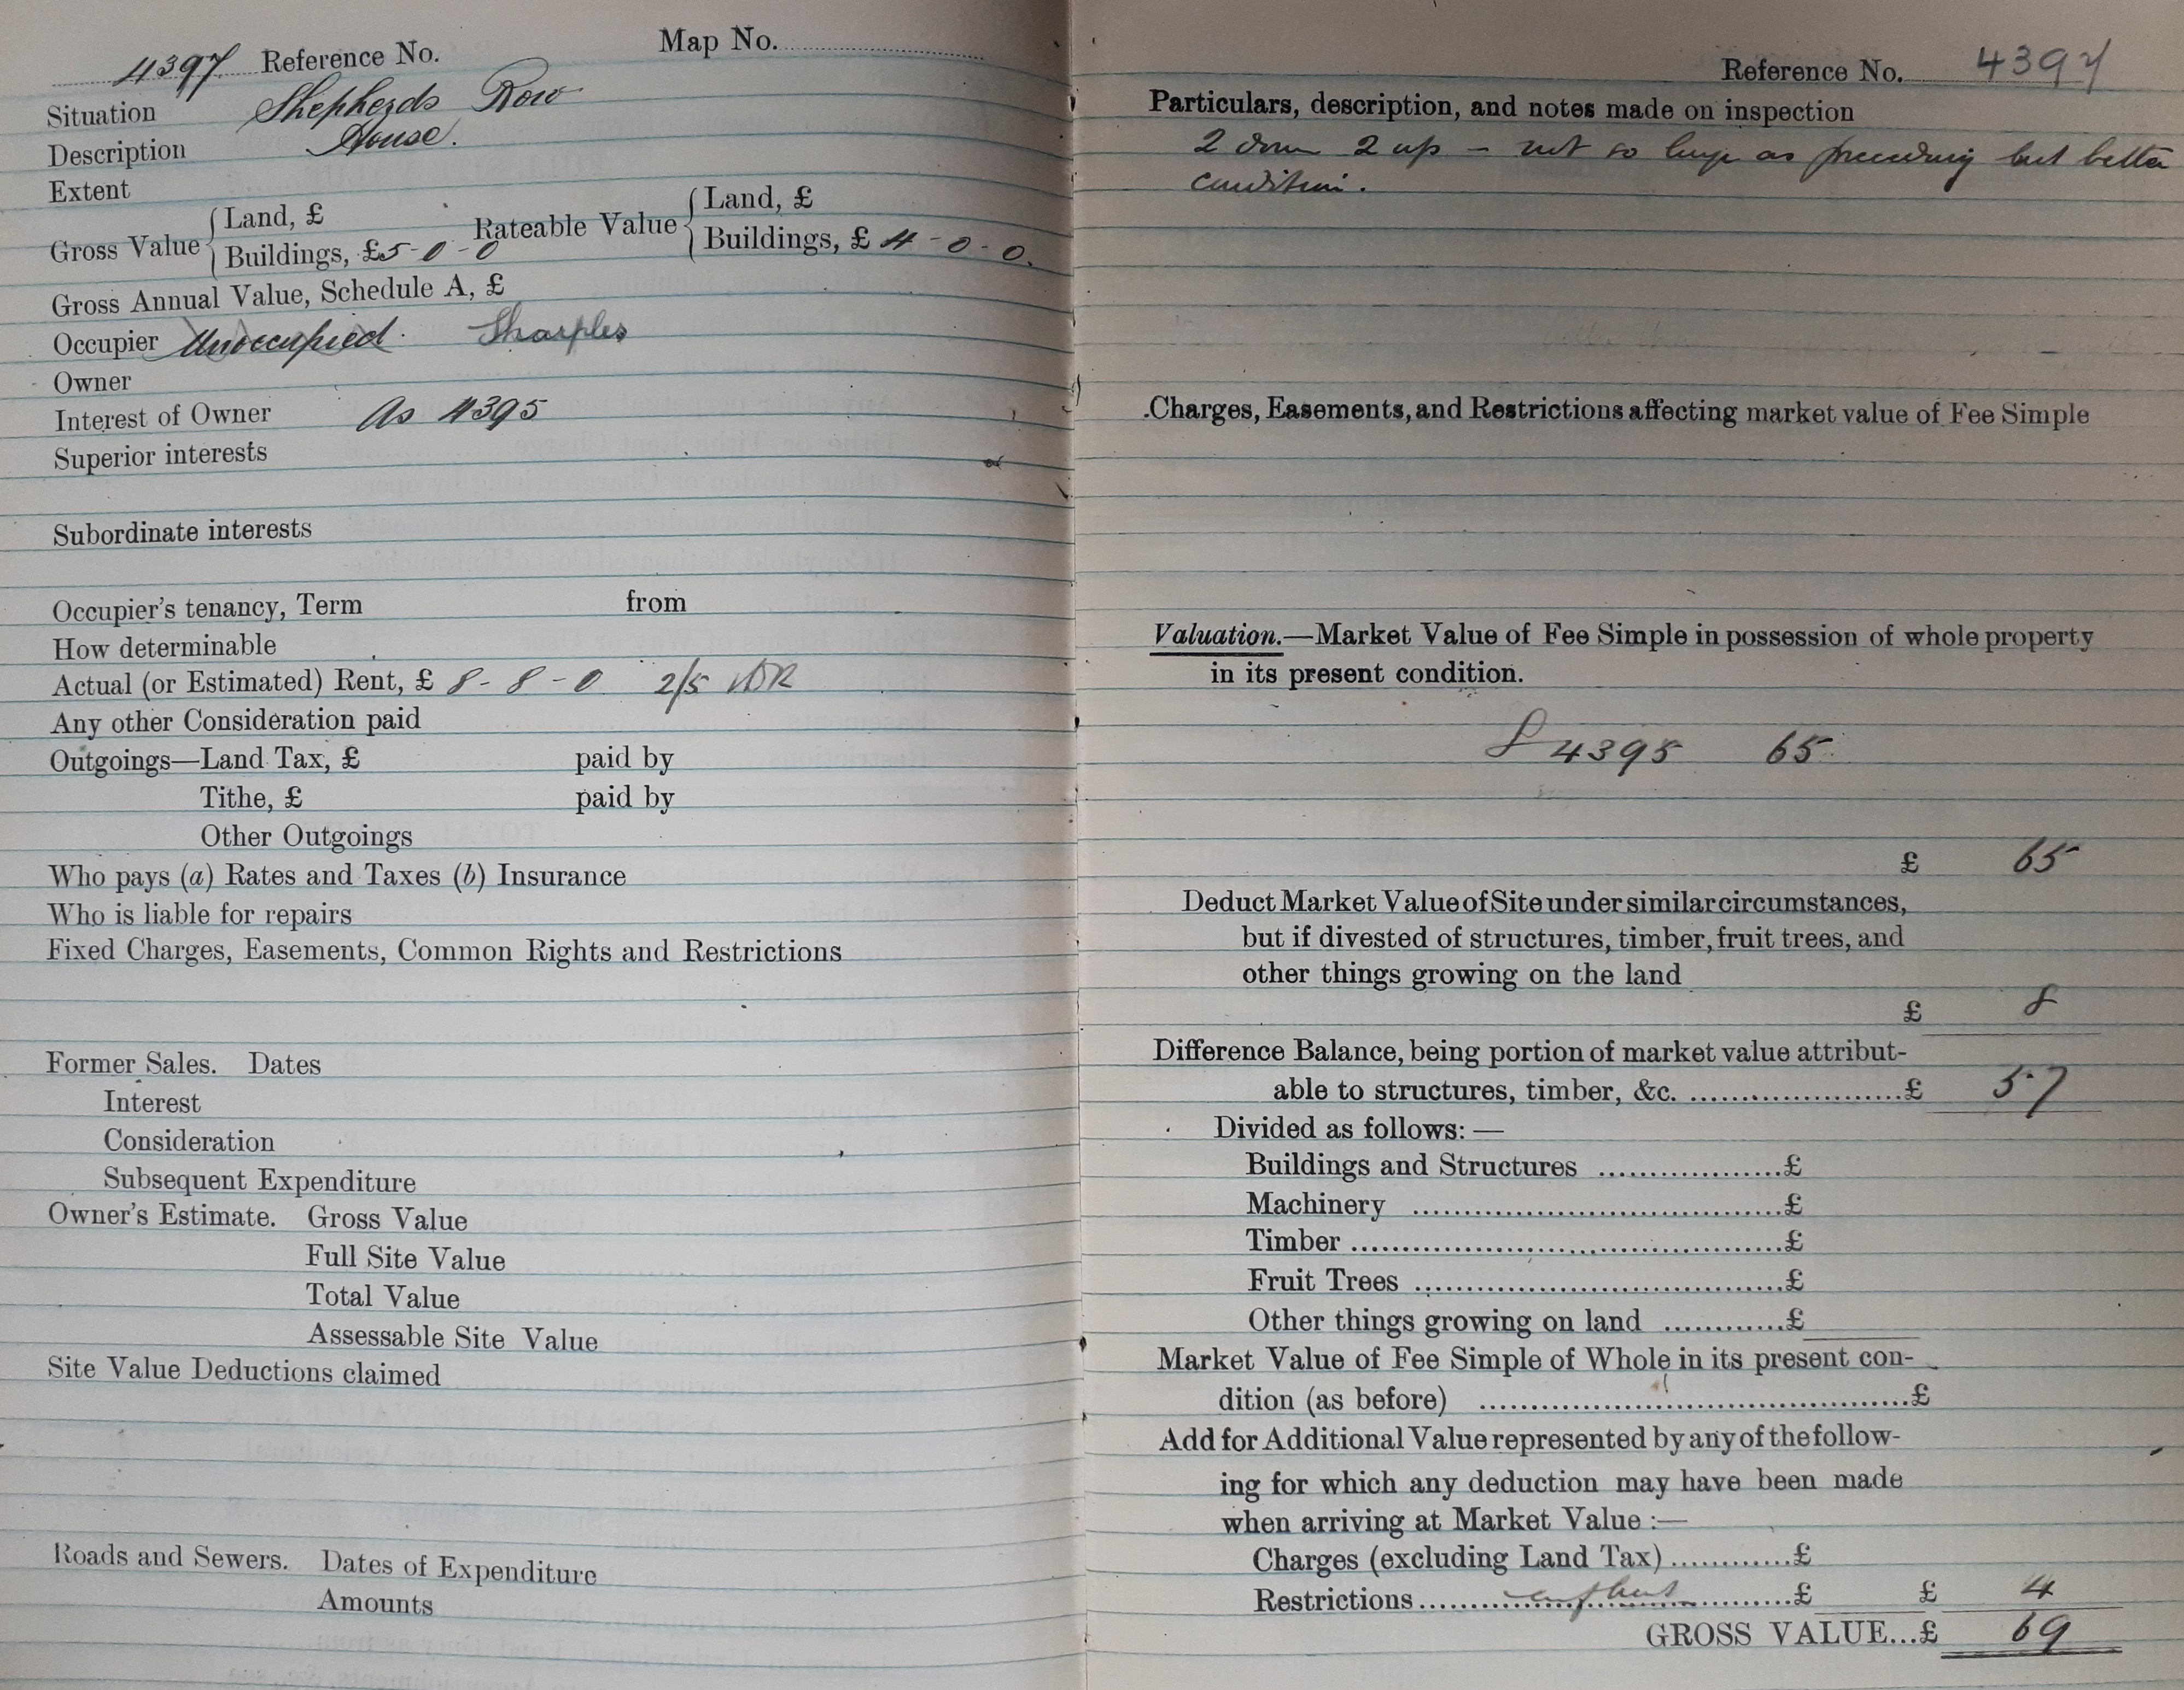 4397 Reference No. Map No.
Situation Shepherds Row
Description House.
Extent
Gross Value { Land, £ Rateable Value { Land, £
Buildings, £5-0-0 Buildings, £ 4-0-0.
Gross Annual Value, Schedule A, £
Occupier Unoccupied. Sharples
Owner
Interest of Owner As 4395
Superior interests
Subordinate interests
Occupier's tenancy, Term from
How determinable
Actual (or Estimated) Rent, £ 8-8-0 2/5
Any other Consideration paid
Outgoings—Land Tax, £ paid by
Tithe, £ paid by
Other Outgoings
Who pays (a) Rates and Taxes (b) Insurance
Who is liable for repairs
Fixed Charges, Easements, Common Rights and Restrictions
Former Sales. Dates
Interest
Consideration
Subsequent Expenditure
Owner's Estimate. Gross Value
Full Site Value
Total Value
Assessable Site Value
Site Value Deductions claimed
Roads and Sewers. Dates of Expenditure
Amounts
Reference No. 4397
Particulars, description, and notes made on inspection
2 down 2 up - not so large as preceding but better
condition.
Charges, Easements, and Restrictions affecting market value of Fee Simple
Valuation.—Market Value of Fee Simple in possession of whole property
in its present condition.
4395 65
£ 65
Deduct Market Value of Site under similar circumstances,
but if divested of structures, timber, fruit trees, and
other things growing on the land
£ 8
Difference Balance, being portion of market value attribut-
able to structures, timber, &c. ....................£ 57
Divided as follows:—
Buildings and Structures ..................£
Machinery ....................................£
Timber..........................................£
Fruit Trees ....................................£
Other things growing on land ............£
Market Value of Fee Simple of Whole in its present con-
dition (as before) ..........................................£
Add for Additional Value represented by any of the follow-
ing for which any deduction may have been made
when arriving at Market Value:—
Charges (excluding Land Tax)............£
Restrictions....................................£ £ 4
GROSS VALUE...£ 69